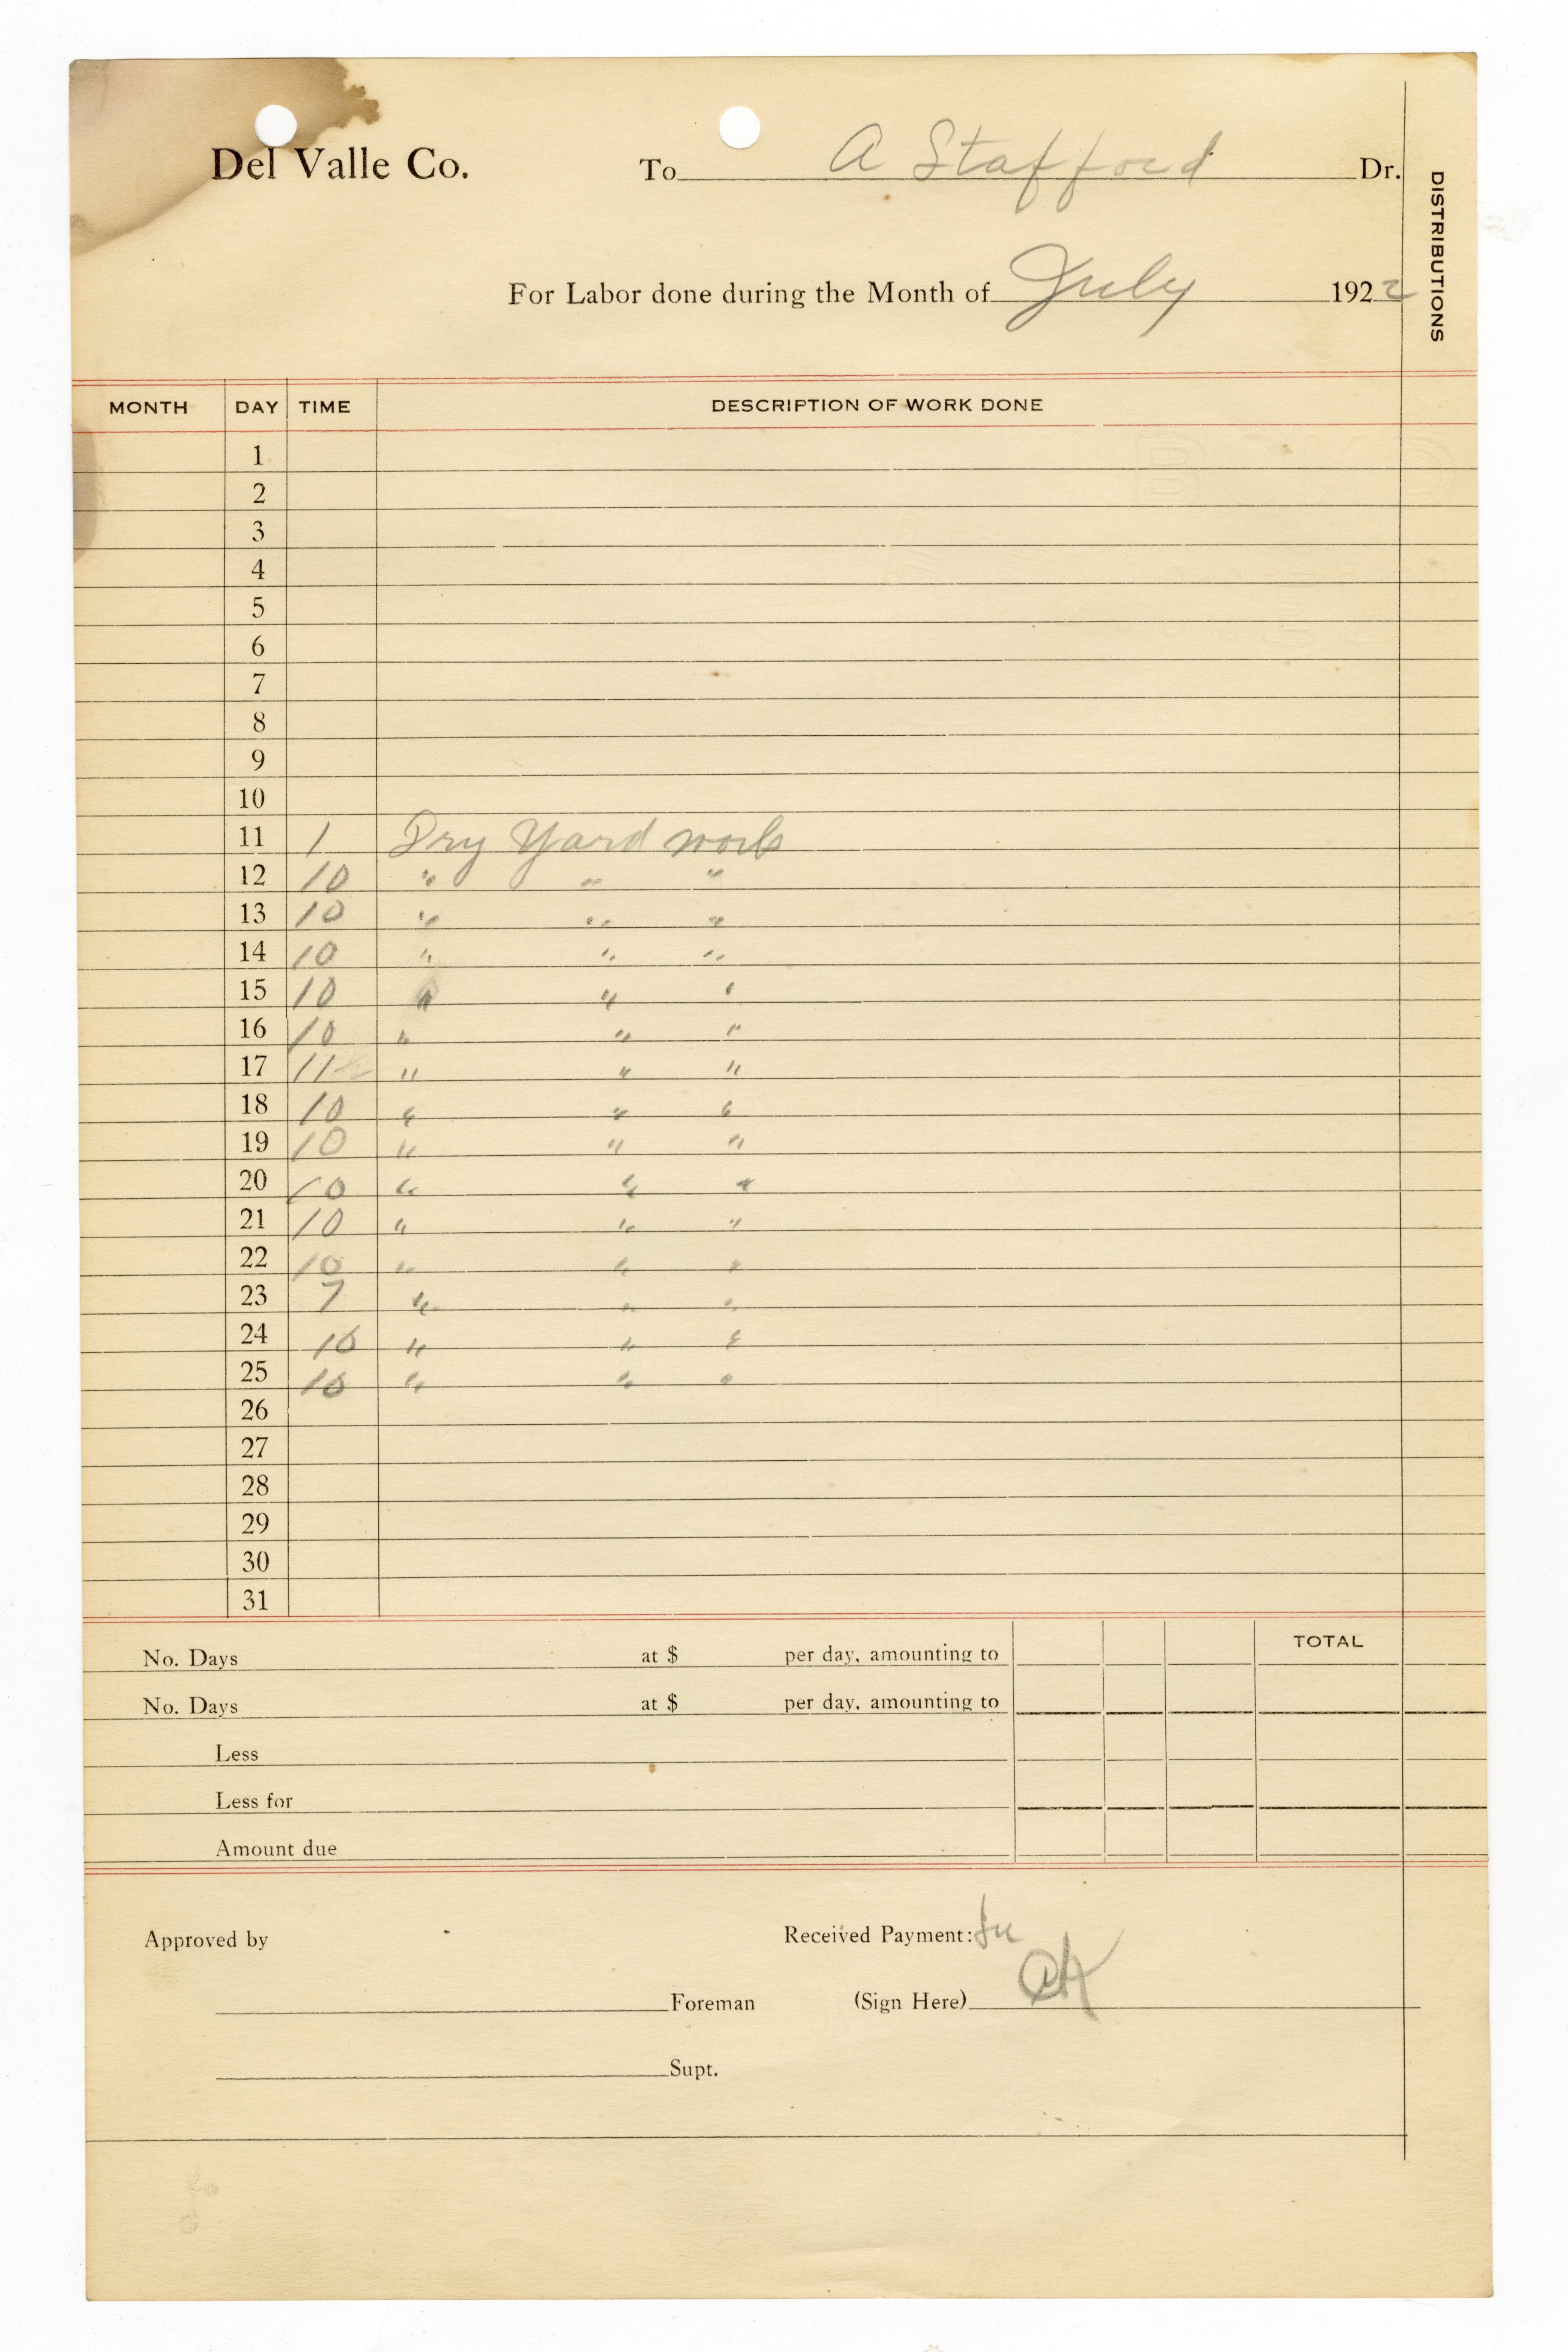 Del Valle Co. To A Stafford Dr.
For Labor done during the Month of July 1922
DISTRIBUTIONS
MONTH DAY TIME DESCRIPTION OF WORK DONE
1
2
3
4
5
6
7
8
9
10
11 1 Dry Yard work
12 10 " " "
13 10 " " "
14 10 " " "
15 10 " " "
16 10 " " "
17 11 " " "
18 10 " " "
19 10 " " "
20 10 " " "
21 10 " " "
22 10 " " "
23 7 " " "
24 10 " " "
25 10 " " "
26
27
28
29
30
31
TOTAL
No. Days at $ per day, amounting to
No. Days at $ per day, amounting to
Less
Less for
Amount due
Approved by Received Payment:
Foreman (Sign Here) OK
Supt.